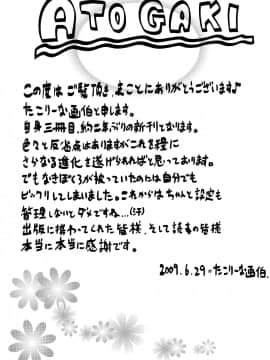 ATO GAKI
この度は ご覧頂き、まことにありがとうございます♪
たこりーな画伯と申します。
自身三冊目、約二年ぶりの新刊となります。
色々と反省点はありますがこれを糧に
さらなる進化を遂げられればと思っております。
でもなきぼくろが被っていたのには自分でも
ビックリしてしまいました。これからはちゃんと設定も
管理しないとダメですね…(汗)
出版に携わってくれた皆様、そして読者の皆様
本当に本当に感謝です。
2009.6.29 たこりーな画伯.